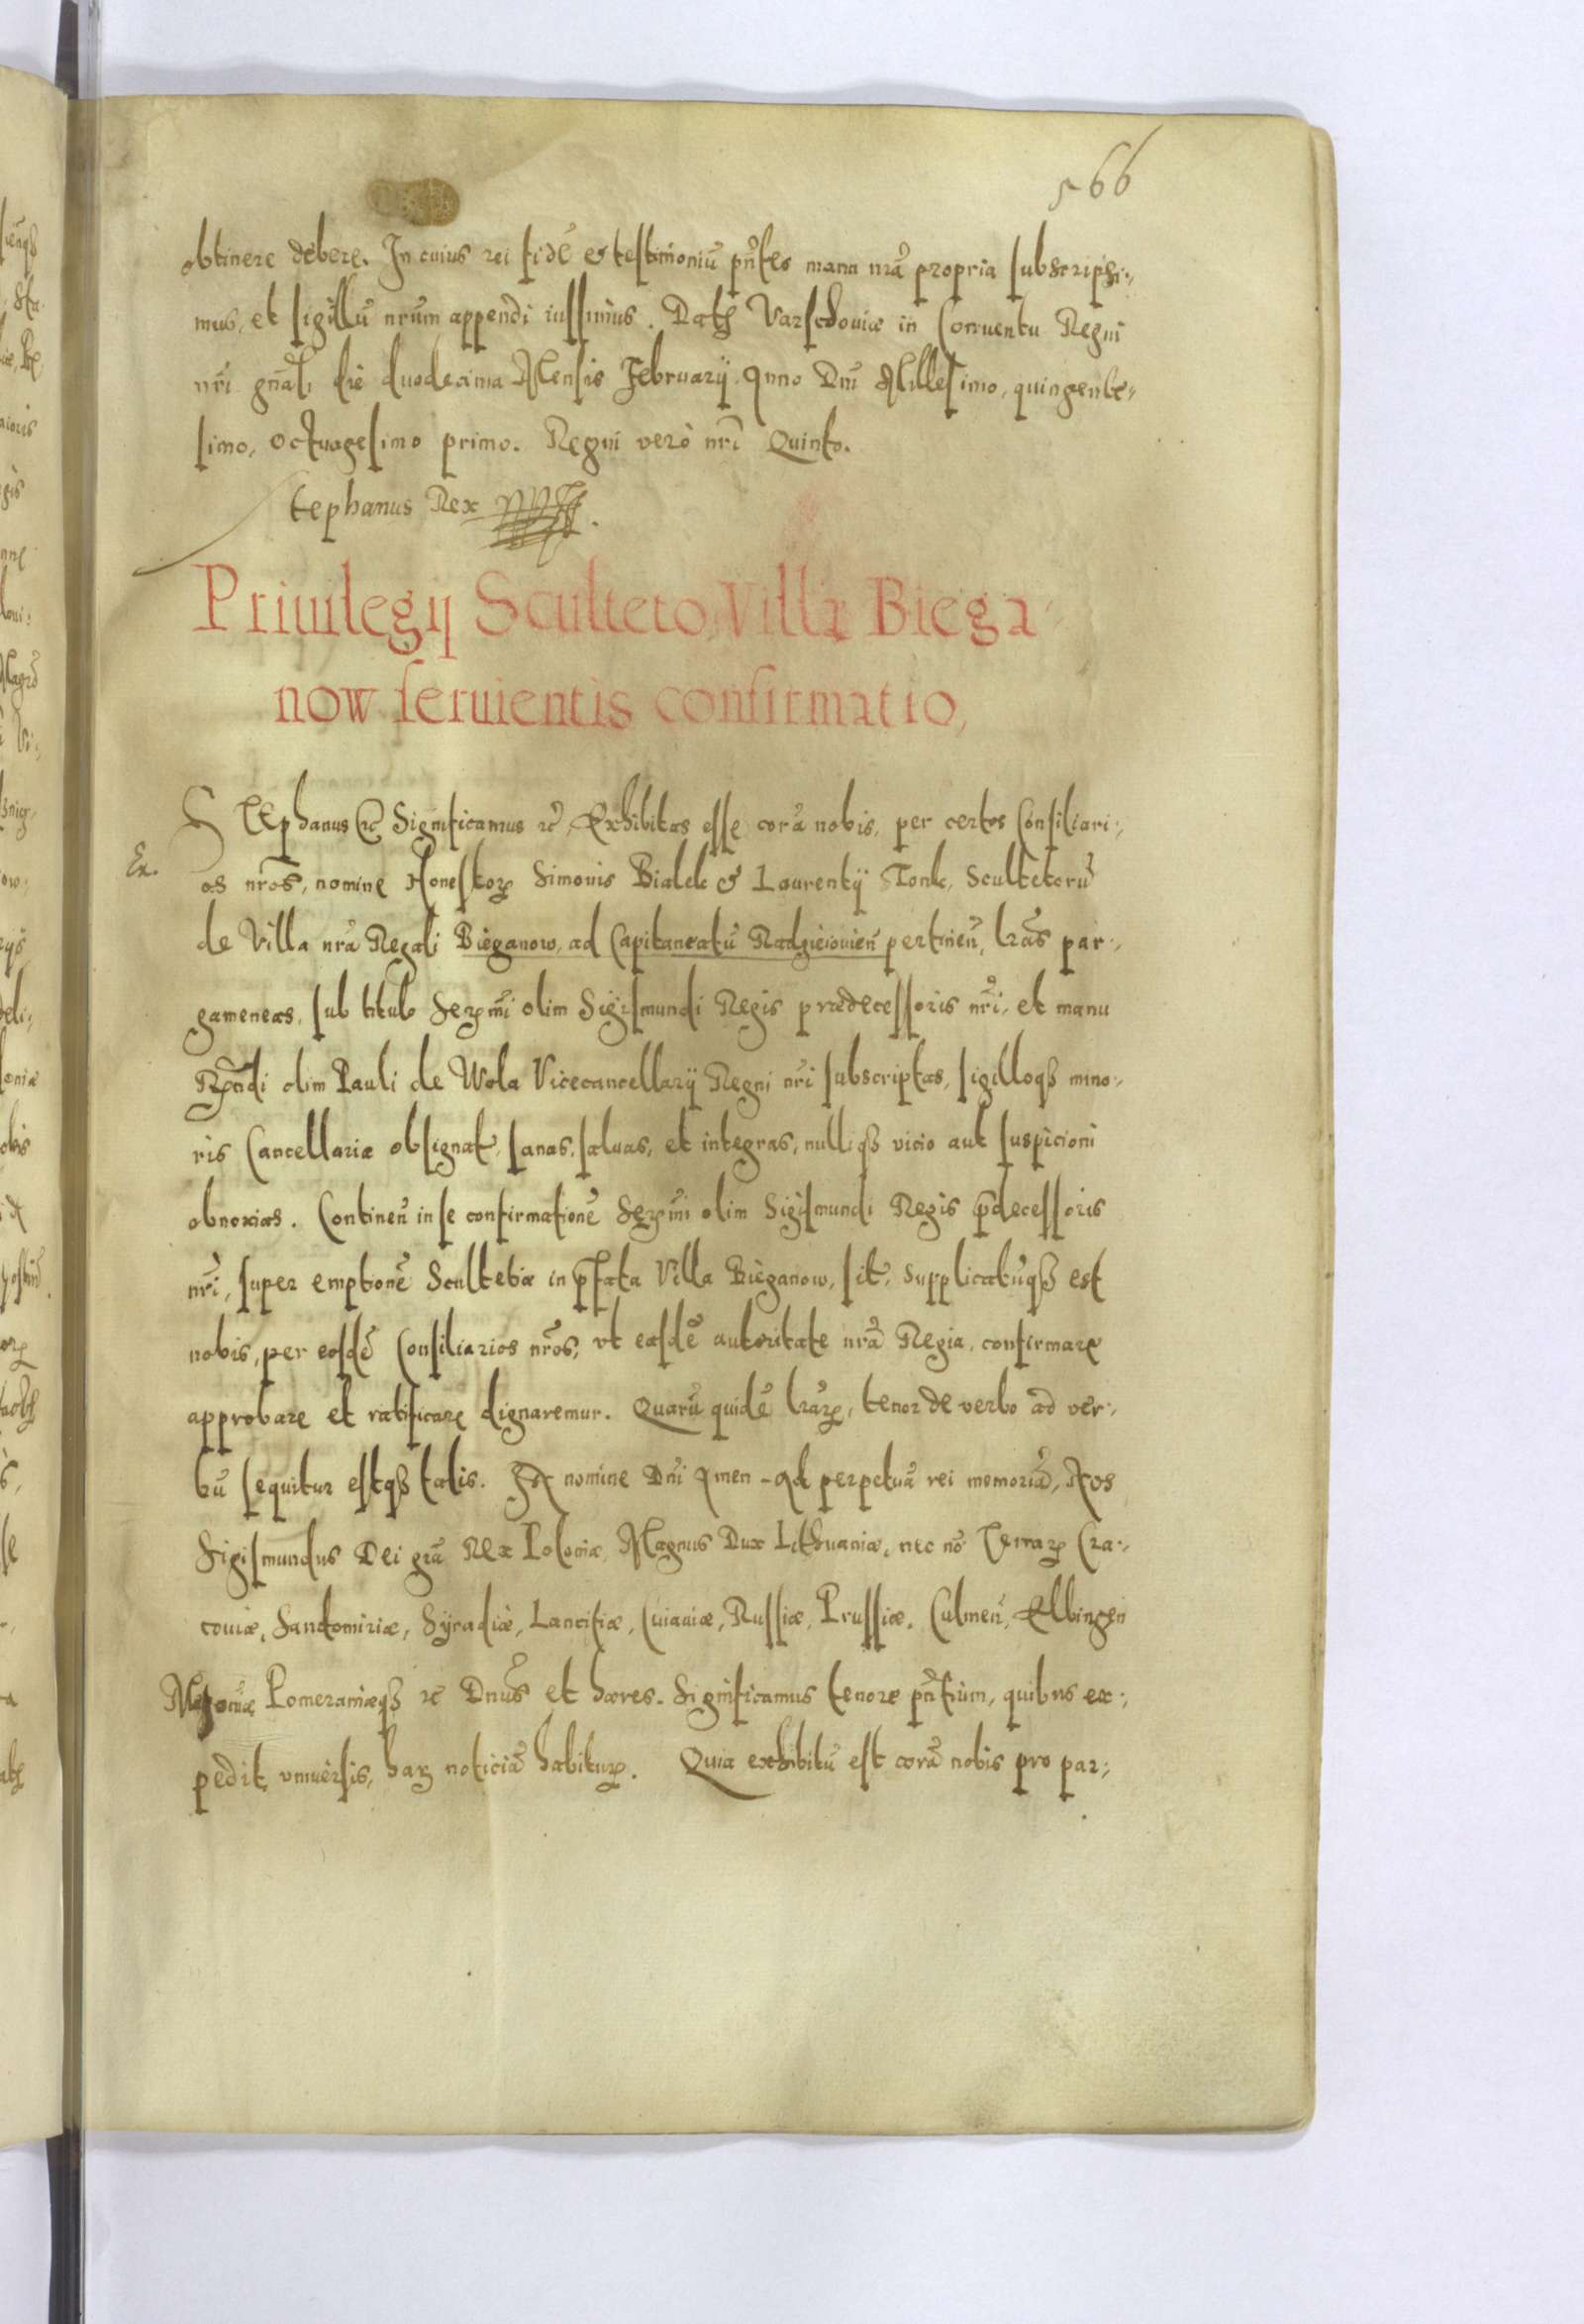 566
obtinere debere. In cuius rei fidẽ et testimoniũ pñtes manu nrã propria subscripsi:,
mus, et sigillũ nrũm appendi iussimus. Datꝭ Varschouiæ in Conuentu Regni
nrĩ gñali die duodecima Mensis Februarÿ Anno Dnĩ Millesimo, quingente,,
simo, Octuagesimo primo. Regni verò nrĩ Quinto.
tephanus Rex
Priuilegÿ Sculteto Villæ Biega
now seruientis confirmatio,
STEphanus etc̃ Significamus etc̃, Exhibitas esse corã nobis, per certos Consiliari:,
Ex.
os nrõs, nomine Honestoꝝ Simonis Bialek et Laurentÿ Tonk, Scultetorũ
de Villa nrã Regali Bieganow, ad Capitaneatũ Radzieiouieñ pertineñ, lrãs par:,
gameneas, sub titulo Serꝫmĩ olim Sigismundi Regis prædecessoris nrĩ, et manu
Rꝫndi olim Pauli de Wola Vicecancellarÿ Regni nrĩ subscriptas, sigilloqꝫ mino:,
ris Cancellariæ obsignat, sanas, saluas, et integras, nulliqꝫ vicio aut suspicioni
obnoxias. Contineñ in se confirmationẽ Serꝫmĩ olim Sigismundi Regis p̃decessoris
nrĩ, super emptionẽ Scultetiæ in p̃fata Villa Bieganow, sit, Supplicatũqꝫ est
nobis, per eosdẽ Consiliarios nrõs, vt easdẽ autoritate nrã Regia, confirmare
approbare et ratificare dignaremur. Quarũ quidẽ lrãꝝ, tenor de verbo ad ver:,
bũ sequitur estqꝫ talis. IN nomine Dnĩ Amen Ad perpetuã rei memoriã, Nos
Sigismundus Dei grã Rex Poloniæ, Magnus Dux Lithuaniæ, nec nõ Terraꝝ Cra:,
couiæ, Sandomiriæ, Sÿradiæ, Lancitiæ, Cuiauiæ, Russiæ, Prussiæ, Culmeñ, Elbingeñ
Mazouiæ Pomeraniæqꝫ etc̃ Dnũs et hæres. Significamus tenore pñtium, quibus ex:,
pedit, vniuersis, haꝝ noticiã habituꝝ. Quia exhibitũ est corã nobis pro par:,